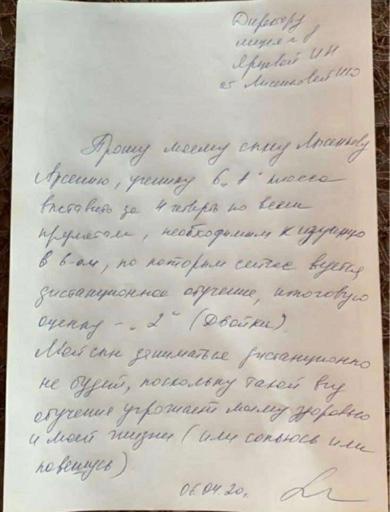 Директору
лицея № 8
Ярцевой И Н
от Лысиковой И Ю
Прошу моему сыну Лысикову
Арсению, ученику 6 „А" класса
выставить за 4 четверть по всем
предметам, необходимым к изучению
в 6-ом, по которым сейчас ведется
дистанционное обучение, итоговую
оценку - „2" (Двойки).
Мой сын заниматься дистанционно
не будет, поскольку такой вид
обучения угрожает моему здоровью
и моей жизни (или сопьюсь или
повешусь)
06.04.20г.